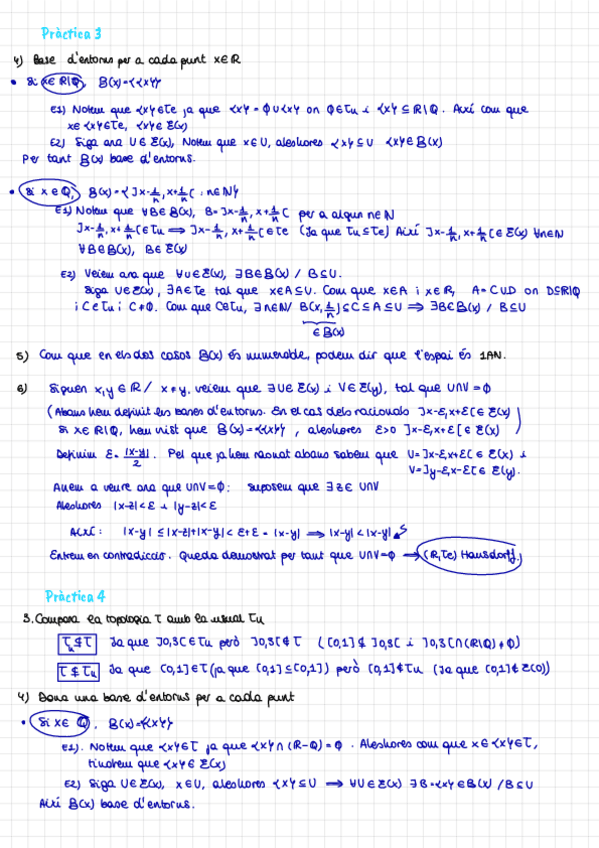 Pràctica 3
4) Base d'entorns per a cada punt x∈ℝ
• Si x∈ℝ\ℚ, B(x)={{x}}
E1) Notem que {x}∈τe ja que {x}=∅∪{x} on ∅∈τu i {x}⊆ℝ\ℚ. Així com que
x∈{x}∈τe, {x}∈Ɛ(x)
E2) Siga ara U∈Ɛ(x), Notem que x∈U, aleshores {x}⊆U {x}∈B(x)
Per tant B(x) base d'entorns.
• Si x∈ℚ, B(x)={]x-1/n, x+1/n[ : n∈ℕ}
E1) Notem que ∀B∈B(x), B=]x-1/n, x+1/n[ per a algun n∈ℕ
]x-1/n, x+1/n[∈τu ⟹ ]x-1/n, x+1/n[∈τe (Ja que τu⊆τe) Així ]x-1/n, x+1/n[∈Ɛ(x) ∀n∈ℕ
∀B∈B(x), B∈Ɛ(x)
E2) Veiem ara que ∀U∈Ɛ(x), ∃B∈B(x) / B⊆U.
Siga U∈Ɛ(x), ∃A∈τe tal que x∈A⊆U. Com que x∈A i x∈ℝ, A=C∪D on D⊆ℝ\ℚ
i C∈τu i C≠∅. Com que C∈τu, ∃n∈ℕ/ B(x,1/n)⊆C⊆A⊆U ⟹ ∃B∈B(x) / B⊆U
∈B(x)
5) Com que en els dos casos B(x) és numerable, podem dir que l'espai és 1AN.
6) Siguen x,y∈ℝ / x≠y. veiem que ∃U∈Ɛ(x) i V∈Ɛ(y), tal que U∩V=∅
(Abans hem definit les bases d'entorns. En el cas dels racionals ]x-ε,x+ε[∈Ɛ(x)
Si x∈ℝ\ℚ, hem vist que B(x)={{x}}, aleshores ε>0 ]x-ε,x+ε[∈Ɛ(x))
Definim ε=|x-y|/2. Pel que ja hem raonat abans sabem que U=]x-ε,x+ε[∈Ɛ(x) i
V=]y-ε,x-ε[∈Ɛ(y).
Anem a veure ara que U∩V=∅: suposem que ∃z∈U∩V
Aleshores |x-z|<ε i |y-z|<ε
Així: |x-y|≤|x-z|+|z-y|<ε+ε=|x-y| ⟹ |x-y|<|x-y|
Entrem en contradicció. Queda demostrat per tant que U∩V=∅ → (ℝ,τe) Hausdorff
Pràctica 4
3. Compara la topologia τ amb la usual τu
τu⊈τ Ja que ]0,3[∈τu però ]0,3[∉τ ([0,1]⊈]0,3[ i ]0,3[∩(ℝ\ℚ)≠∅)
τ⊈τu Ja que [0,1]∈τ (ja que [0,1]⊆[0,1]) però [0,1]∉τu (Ja que [0,1]∉Ɛ(0))
4) Dona una base d'entorns per a cada punt
• Si x∈ℚ, B(x)={{x}}
E1). Notem que {x}∈τ ja que {x}∩(ℝ-ℚ)=∅. Aleshores com que x∈{x}∈τ,
tindrem que {x}∈Ɛ(x)
E2) Siga U∈Ɛ(x), x∈U, aleshores {x}⊆U ⟹ ∀U∈Ɛ(x) ∃B={x}∈B(x) / B⊆U
Així B(x) base d'entorns.